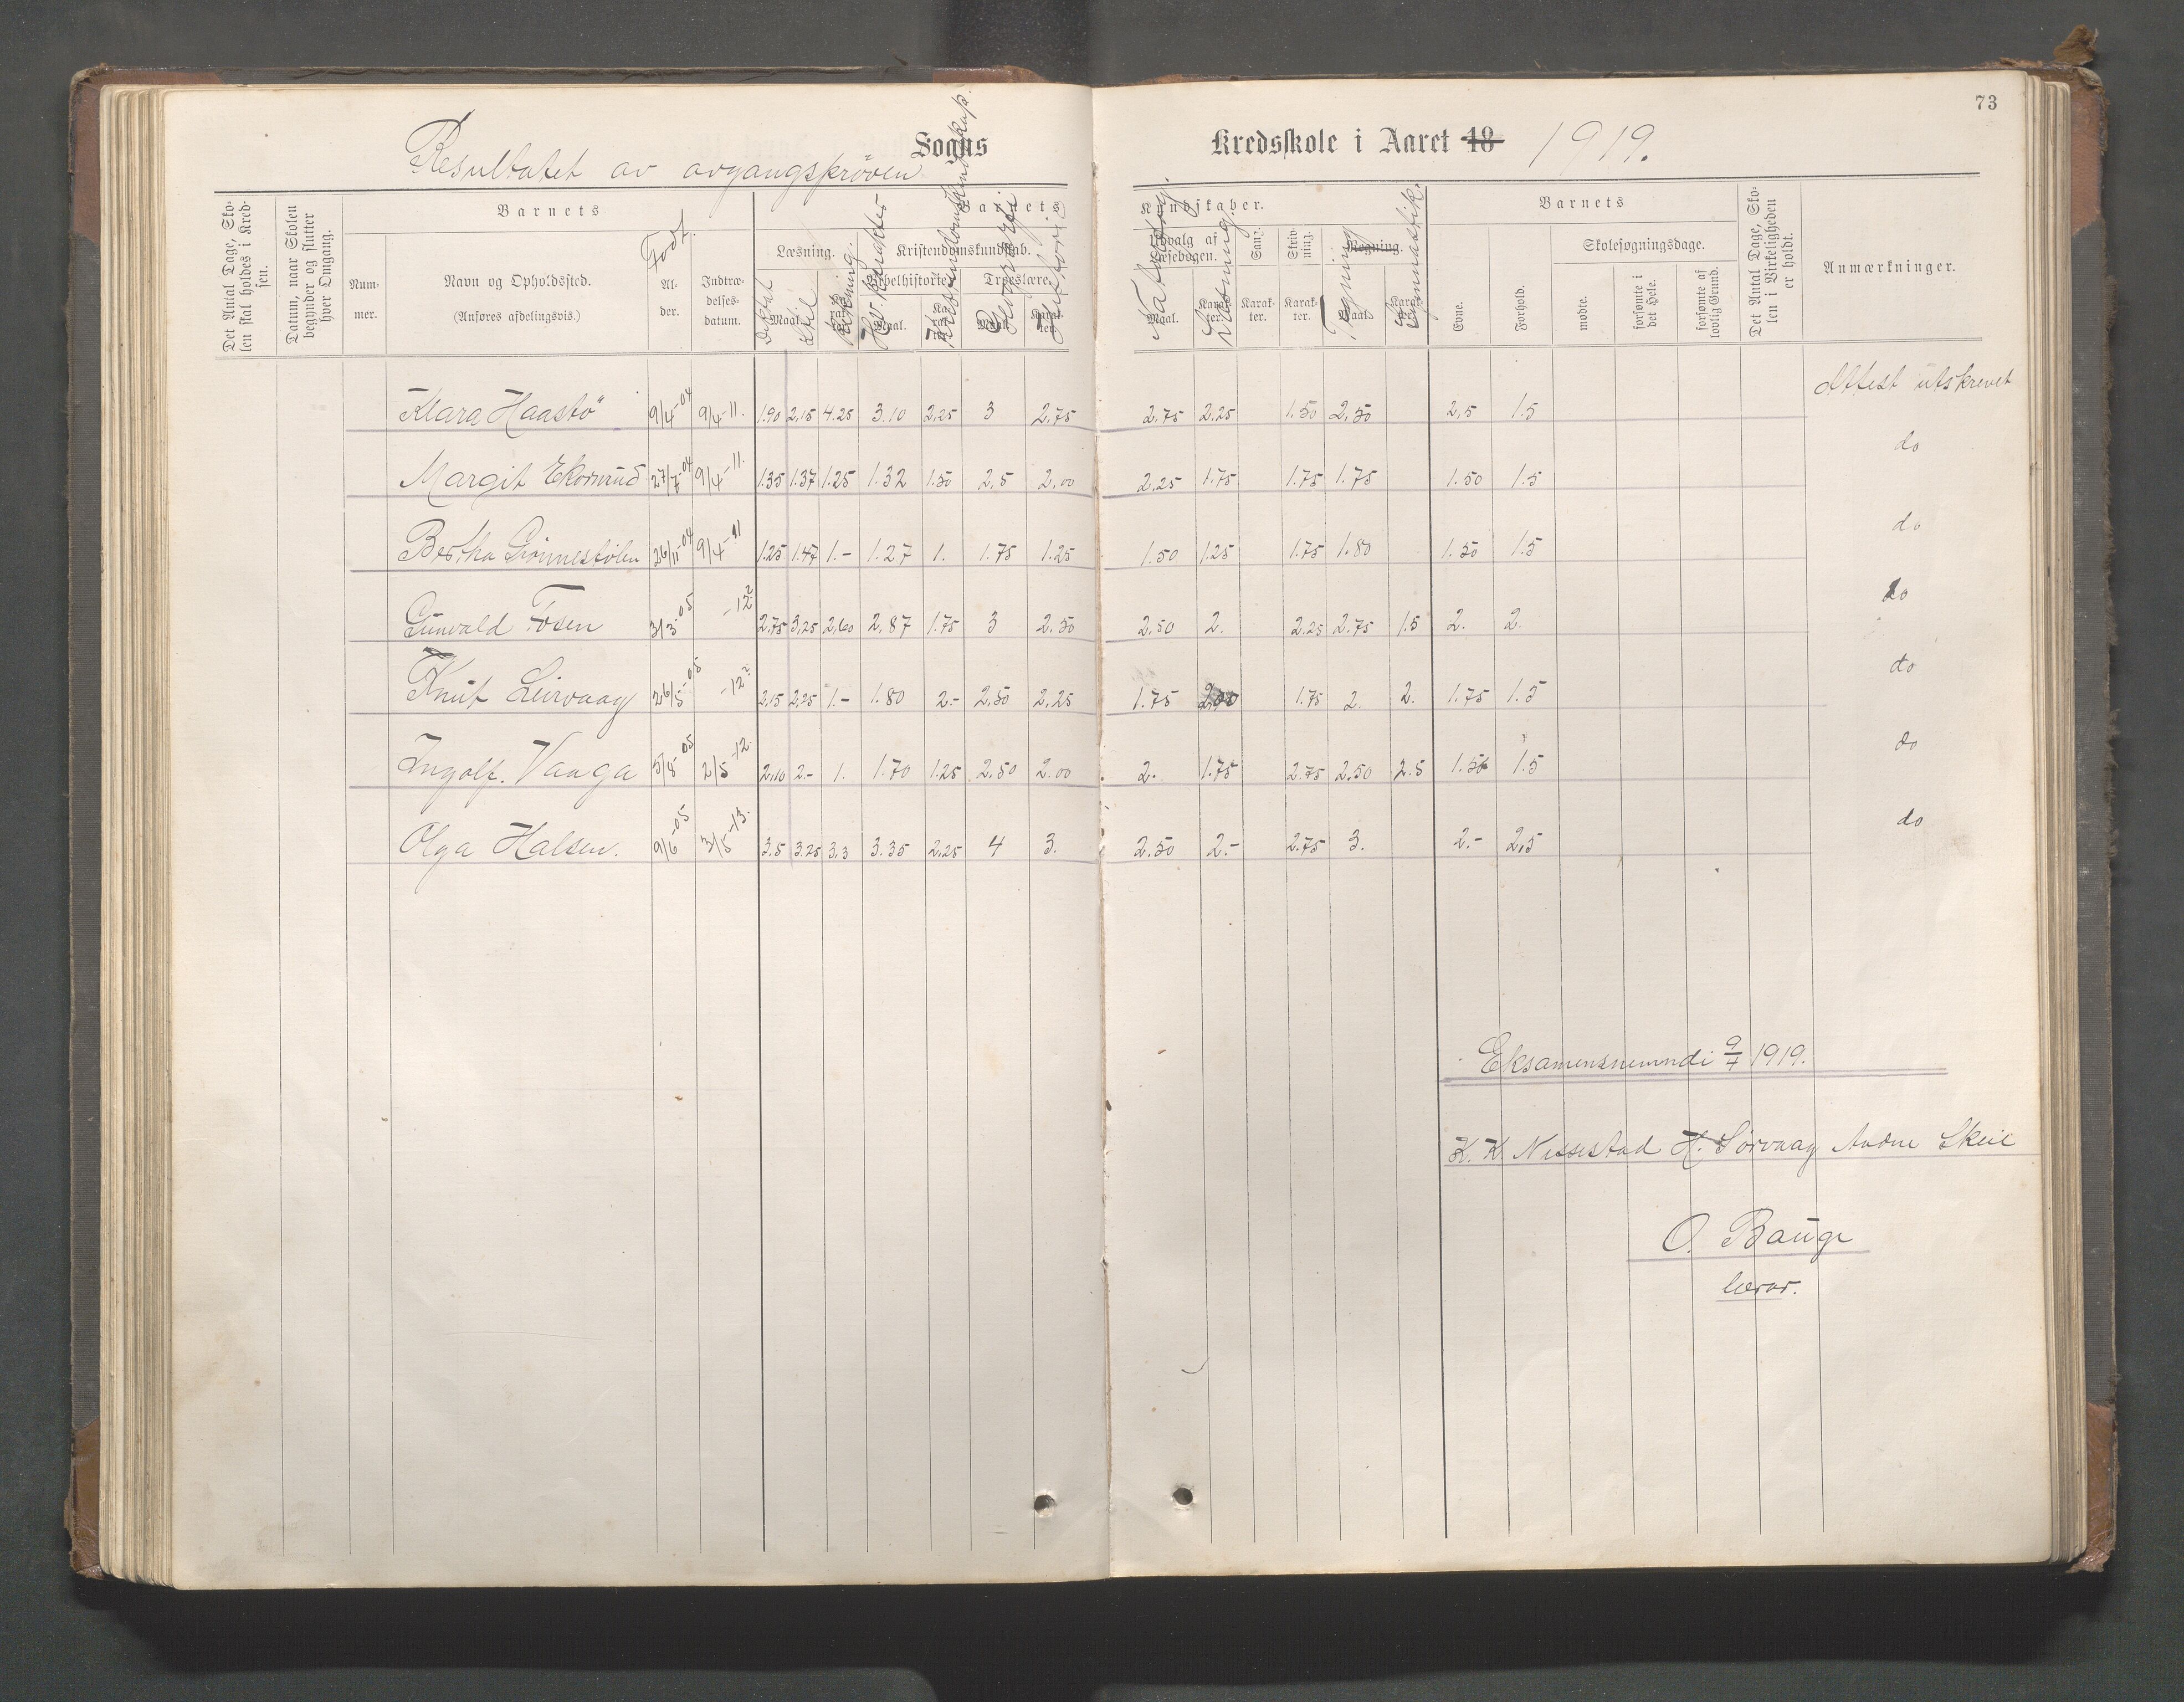 73
Resultatet av avgangsprøven Sogns Kredsskole i Aaret 18 1919.
Det Antal Dage, Skolen skal holdes i Kredsen.
Datum, naar Skolen begynder og slutter hver Omgang.
Barnets
Nummer.
Navn og Opholdssted.
(Anføres afdelingsvis.)
Født.
Alder.
Indtrædelsesdatum.
Barnets
Læsning.
Kristendomskundskab.
Bibelhistorie.
Troeslære.
Maal. Karakter. Maal. Karakter. Maal. Karakter.
Diktat
Stil
Kristendomskundskap.
Geografi
Historie
Kundskaber.
Udvalg af Læsebogen.
Sang.
Skrivning.
Regning.
Maal. Karakter. Karakter. Karakter. Maal. Karakter.
Læsning.
Regning
Gymnastik.
Barnets
Evne.
Forhold.
Skolesøgningsdage.
mødte.
forsømte i det Hele.
forsømte af lovlig Grund.
Det Antal Dage, Skolen i Virkeligheden er holdt.
Anmærkninger.
Klara Haastö 9/4-04 9/4-11. 1.90 2,15 4.25 3.10 2,25 3 2,75 2.75 2,25 1.50 2,50 2,5 1.5 Attest utskrevet
Margit Ekornrud 27/7-04 9/4-11. 1.35 1.37 1.25 1.32 1.50 2,5 2,00 2,25 1.75 1.75 1.75 1.50 1.5 do
Bertha 26/11-04 9/4-11 1.25 1.47 1.- 1.27 1. 1.75 1.25 1.50 1.25 1.75 1.80 1.50 1.5 do
Gunvald Fosen 3/3-05 -12 2.75 3,25 2,60 2,87 1.75 3 2.50 2,50 2. 2.25 2.75 1.5 2. 2. do
Knut Leirvaag 26/5-05 -12 2,15 2,25 1.- 1.80 2.- 2,50 2,25 1.75 2,00 1.75 2. 2. 1.75 1.5 do
Ingolf. Vaaga 5/5-05 2/5-12. 2,10 2.- 1. 1.70 1.25 2,50 2.00 2. 1.75 2.75 2,50 2.5 1.50 1.5 do
Olga Halsen. 9/6-05 3/5-13. 3.5 3.25 3,3 3.35 2,25 4 3. 2.50 2.- 2.75 3. 2.- 2,5 do
Eksamensnemndi 9/4 1919.
K. K. Nessestad H. Sørvaag Andru Skeie
O. Bauge
lærar.